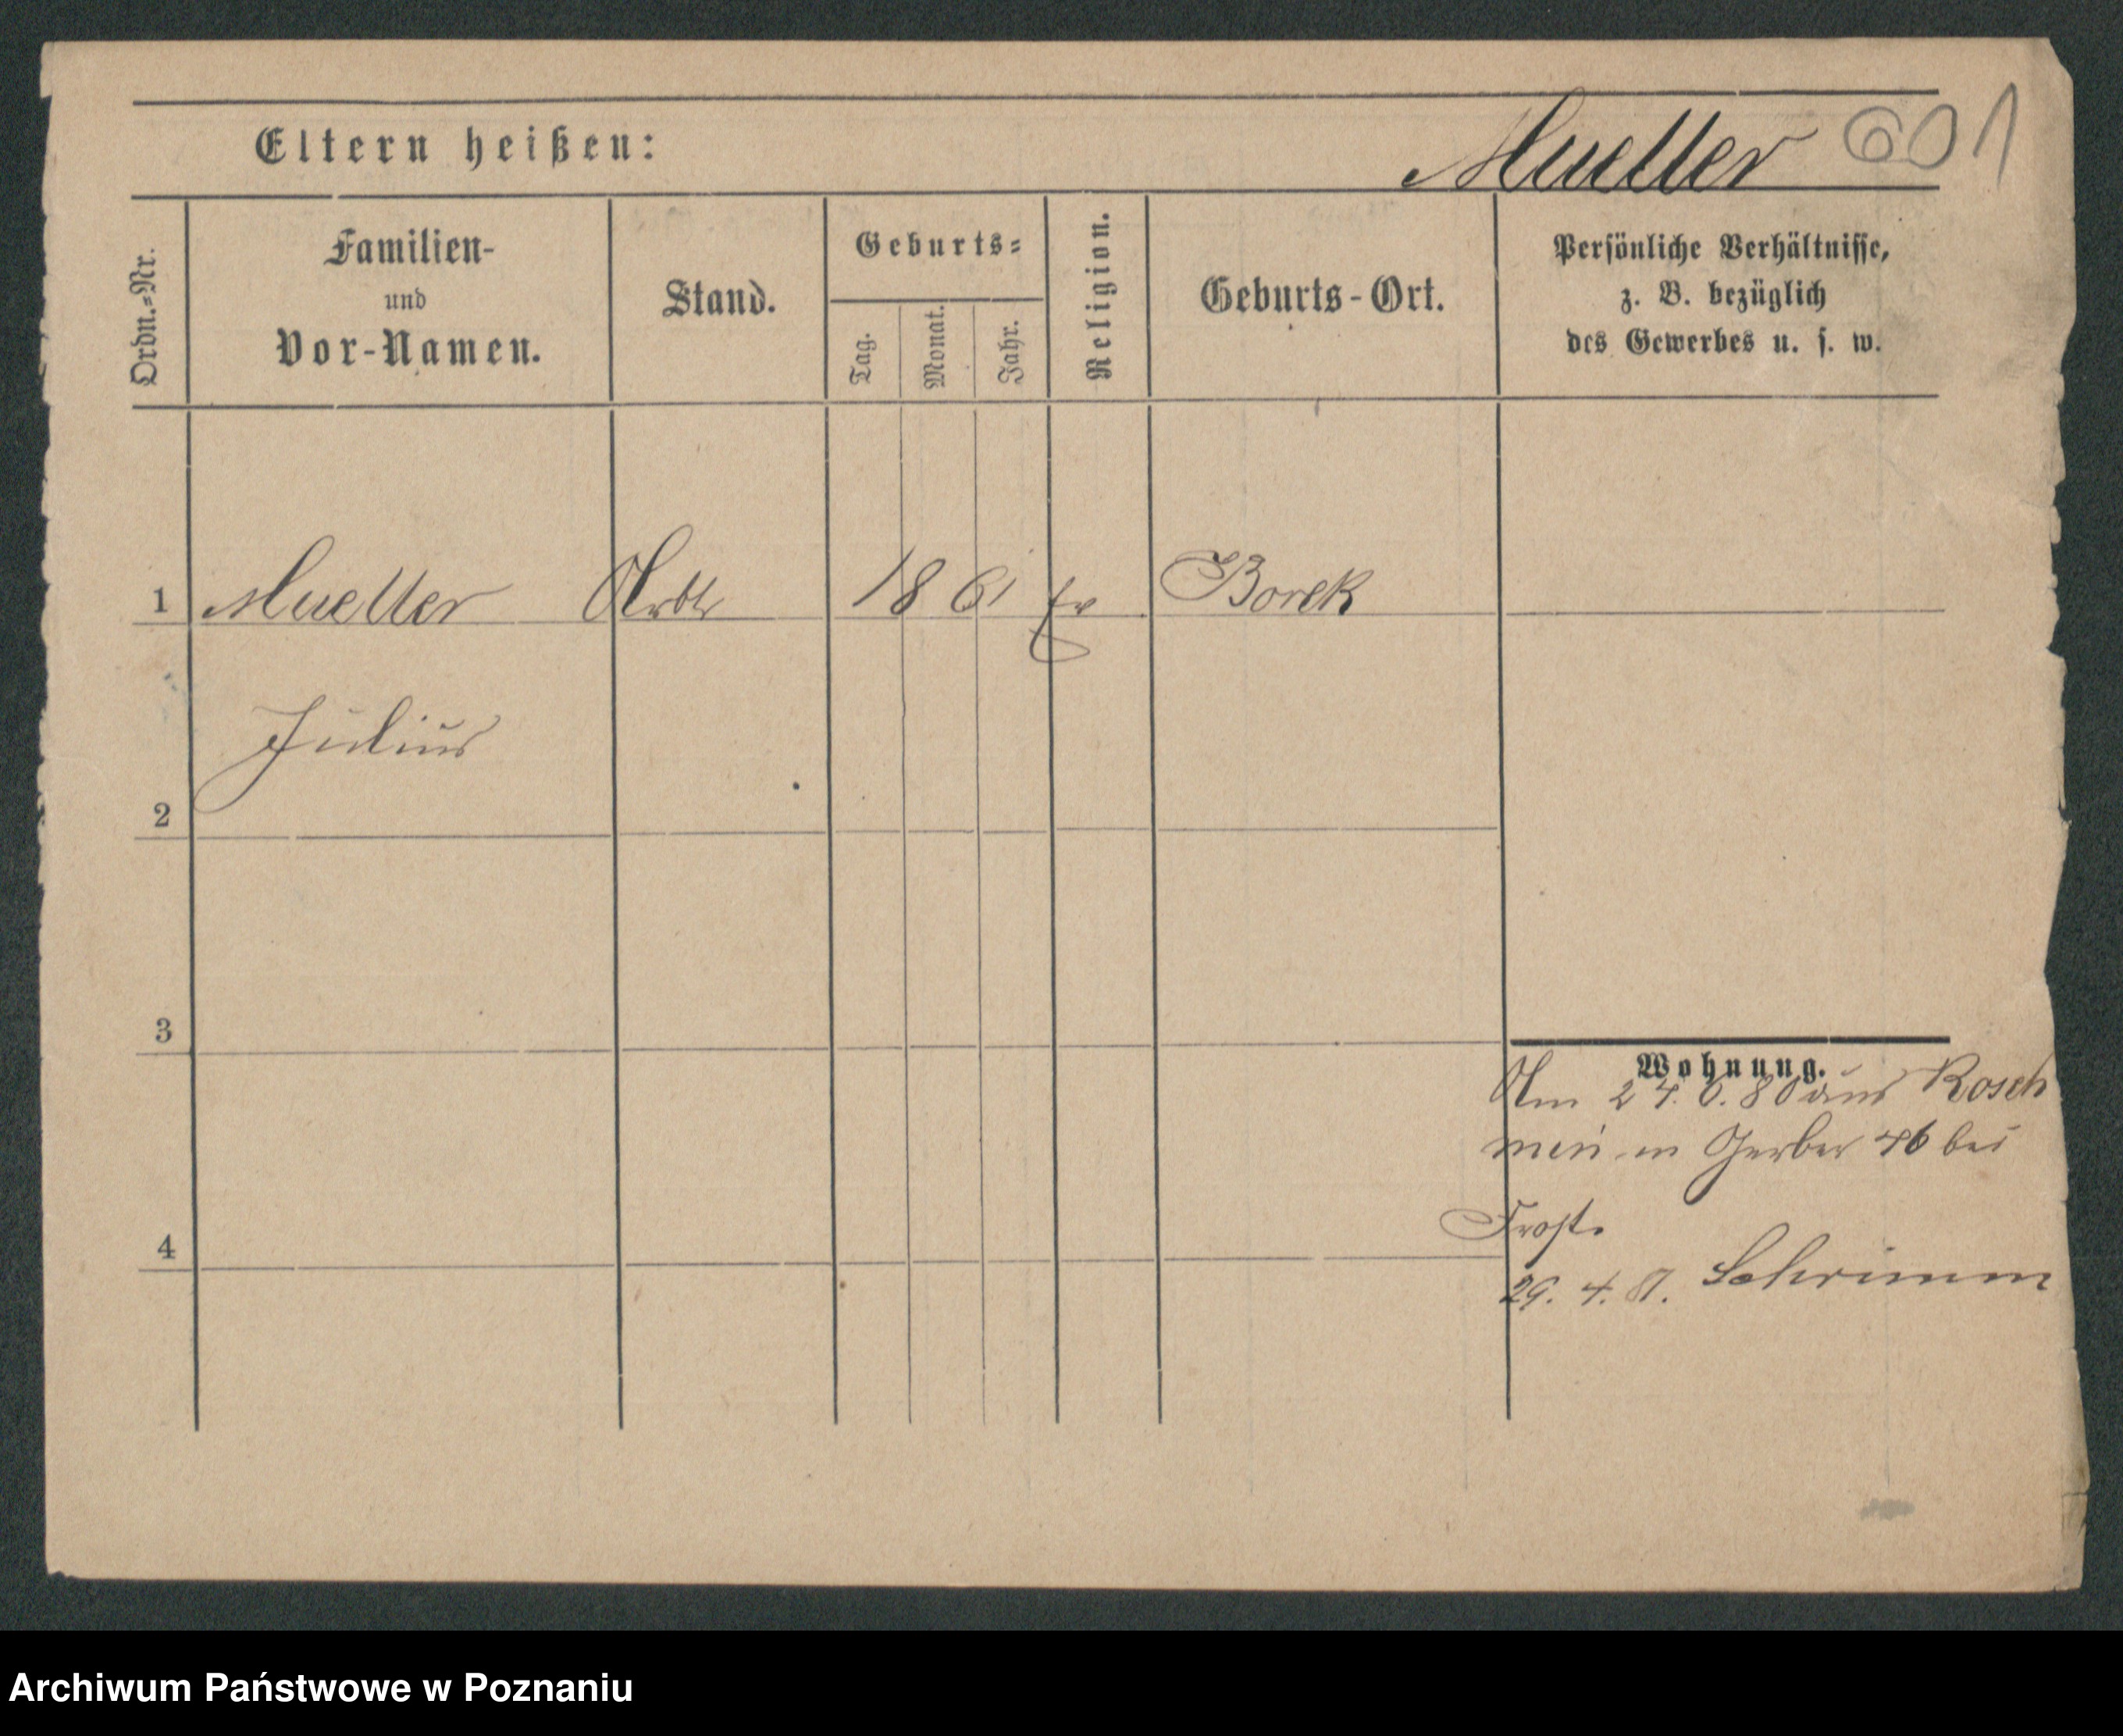 Eltern heißen:
Mueller 601
Ordn.-Nr.
Familien-
und
Vor-Namen.
Stand.
Geburts-
Tag.
Monat.
Jahr.
Religion.
Geburts-Ort.
Persönliche Verhältnisse,
z. B. bezüglich
des Gewerbes u. s. w.
1 Mueller Arbtr 1861 Ev Borek
Julius
2
3
4
Wohnung.
Am 24. 6. 80 aus Rosch
min in Gerber 46 bei
Frost.
29. 4. 81. Schrimm
Archiwum Państwowe w Poznaniu